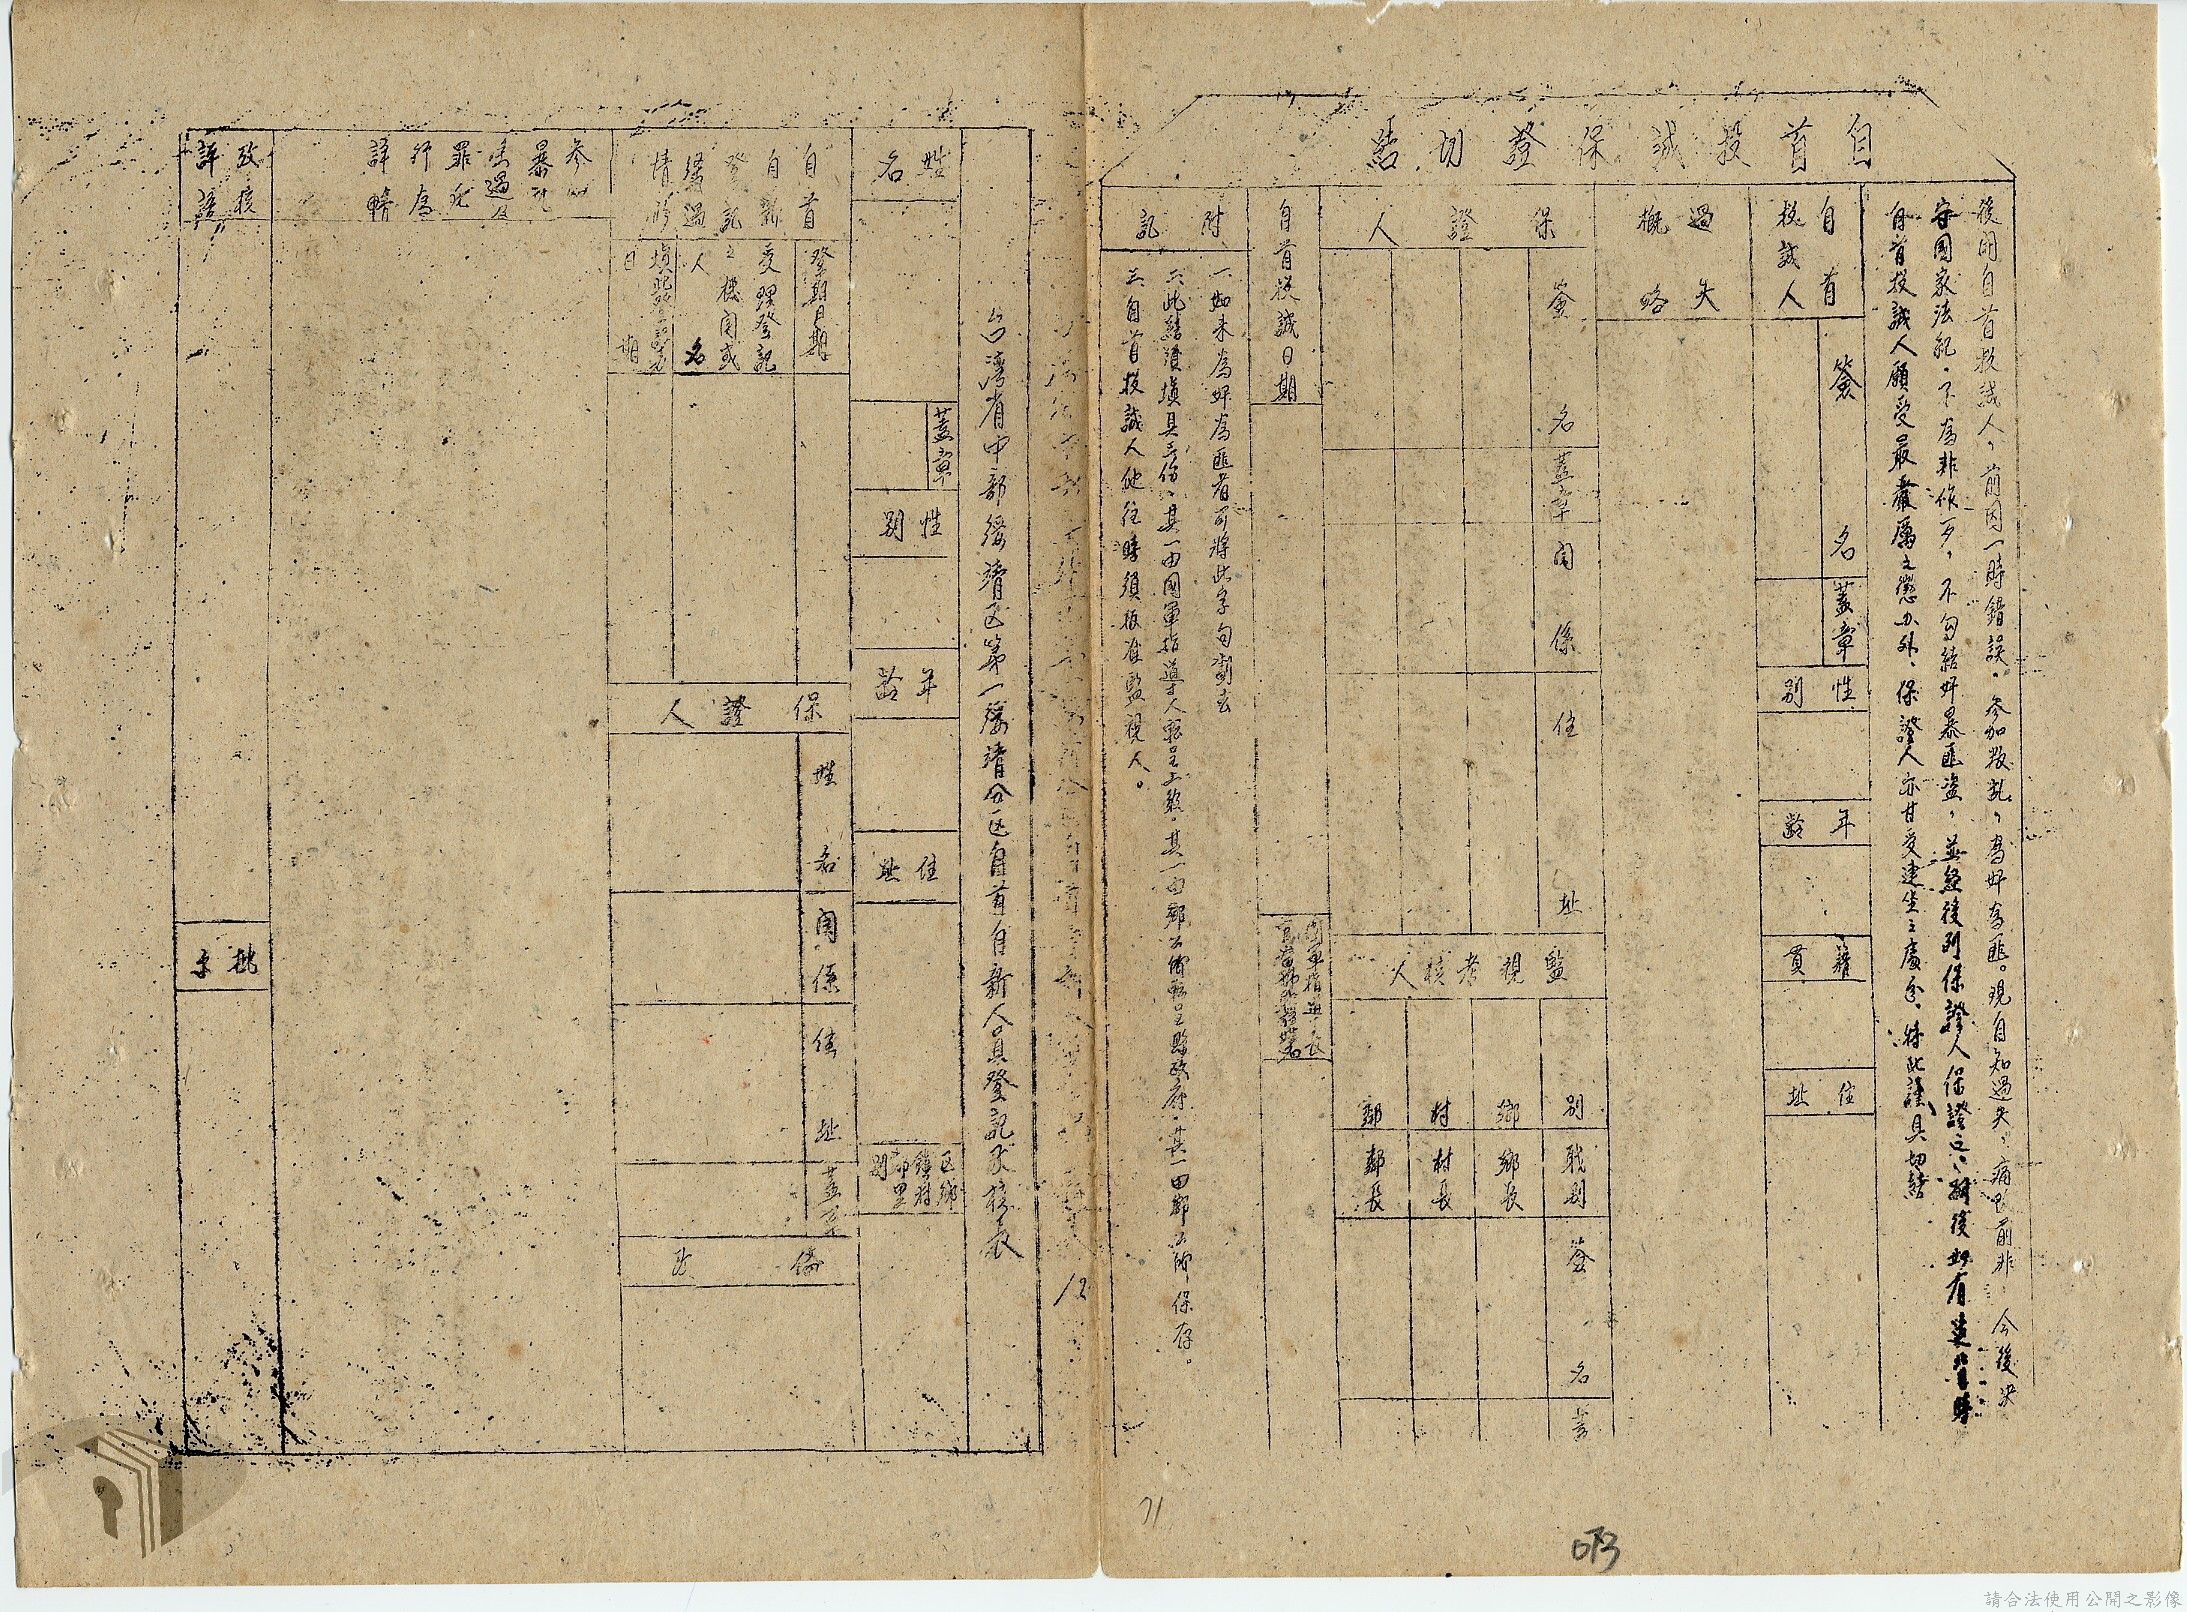 自首投誠保證切結
後開自首投誠人，前因一時錯誤，參加叛亂，為奸為匪。現自知過失，痛改前非，今後決
守國家法紀，不為非作歹，不勾結奸暴匪盜，並經後列保證人保證之，嗣後如有
自首投誠人願受最嚴厲之懲办外，保證人亦甘受連坐之處分，特此謹具切結
自首投誠人
簽名
蓋章
性別
年齡
籍貫
住址
過失概略
保證人
簽名
蓋章
關係
住址
監視考核人
別
鄉
村
鄰
職別
鄉長
村長
鄰長
簽名
蓋
自首投誠日期
附記
一、如未為奸為匪者可將此字句劃去
二、此結須填具三份，其一由國軍指導人轉呈上級，其一由鄉公所轉呈縣政府，其一由鄉公所保存。
三、自首投誠人他往時須報准監視人。
台灣省中部綏靖区第一綏靖分区自首自新人員登記及核表
姓名
蓋章
性別
年齡
住址
区鄉鎮村鄰里別
自首自新登記經過情形
登期日期
受理登記之機關或人名
填此登記表日期
保證人
姓名
關係
住址
蓋章
備考
參加暴亂經過及罪犯行為詳情
攷核評語
批示
12
71
073
請合法使用公開之影像